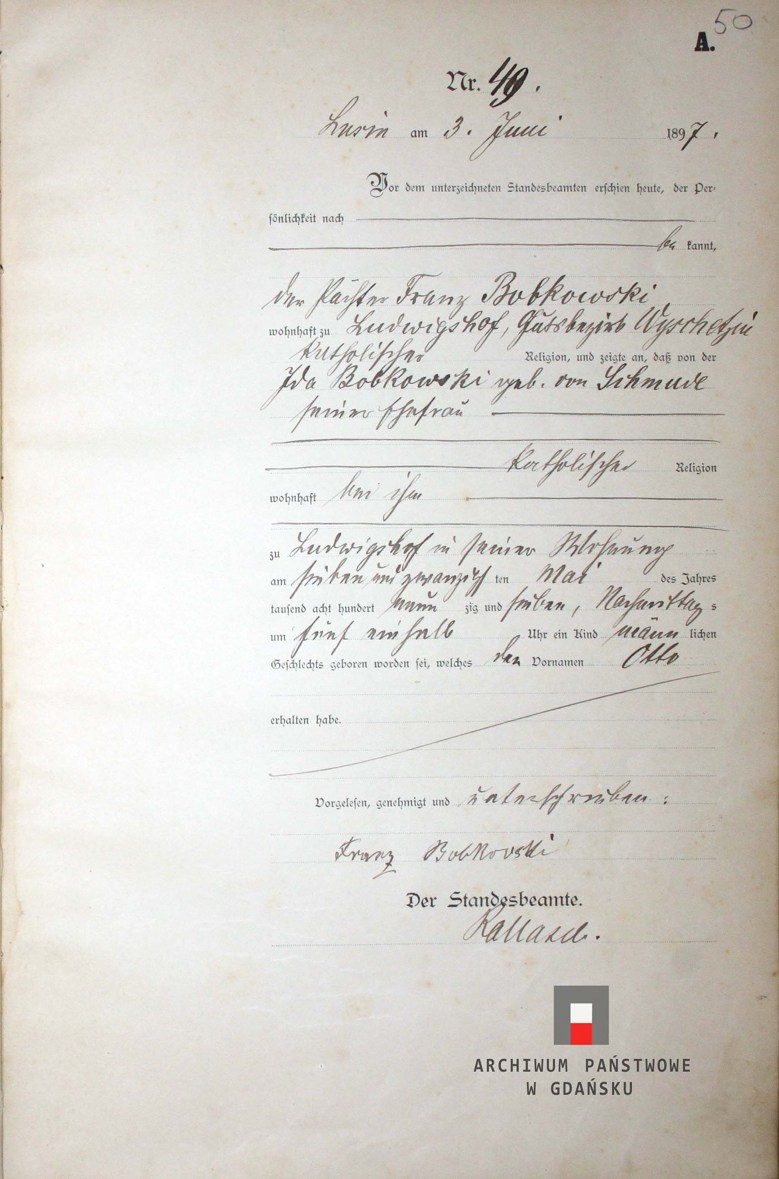 50
A.
Nr. 49.
Lusin am 3. Juni 1897.
Vor dem unterzeichneten Standesbeamten erschien heute, der Per-
sönlichkeit nach
be kannt,
der Pächter Franz Bobkowski
wohnhaft zu Ludwigshof, Gutsbezirk Wyschetzin
katholischer Religion, und zeigte an, daß von der
Ida Bobkowski geb. von Schmude
seiner Ehefrau
katholischer Religion
wohnhaft bei ihm
zu Ludwigshof in seiner Wohnung
am sieben und zwanzigsten Mai des Jahres
tausend acht hundert neun zig und sieben, Nachmittags
um fünf einhalb Uhr ein Kind männ lichen
Geschlechts geboren worden sei, welches den Vornamen Otto
erhalten habe.
Vorgelesen, genehmigt und unterschrieben:
Franz Bobkowski
Der Standesbeamte.
ARCHIWUM PAŃSTWOWE
W GDAŃSKU